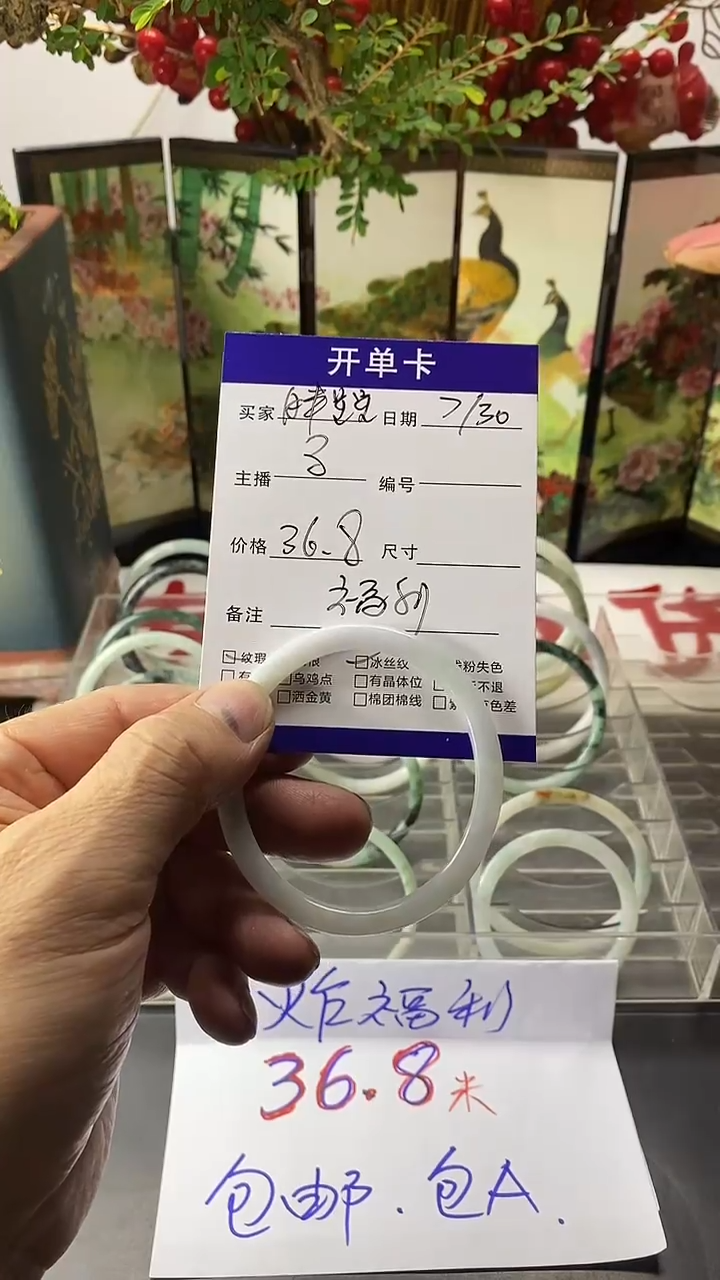 开单卡
买家 胖宝宝 日期 7/30
主播 3 编号
价格 36.8 尺寸
备注 福利
纹瑕 冰丝纹 粉失色
有 乌鸡点 有晶体位 不退
洒金黄 棉团棉线 色差
炸福利
36.8米
包邮.包A.